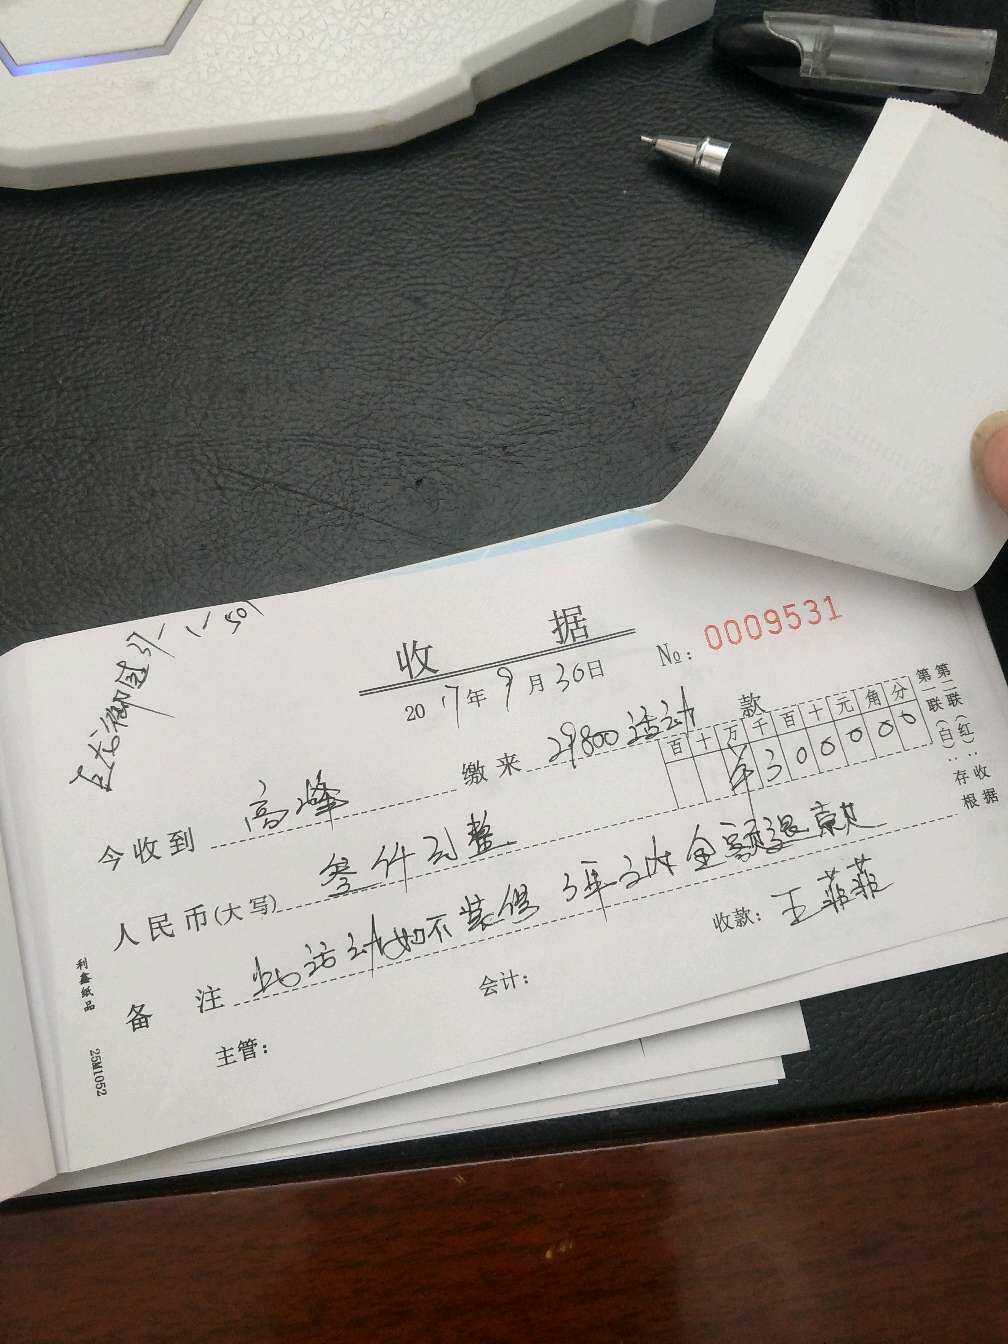 收 据
2017年9月30日
№: 0009531
今收到 高峰 缴来 29800活动 款
百十万千百十元角分
¥300000
人民币(大写) 叁仟元整
备 注 此活动如不装修 3年之内全额退款
主管: 会计: 收款: 王菲菲
第一联(白): 存根
第二联(红): 收据
利鑫纸品 25M1052